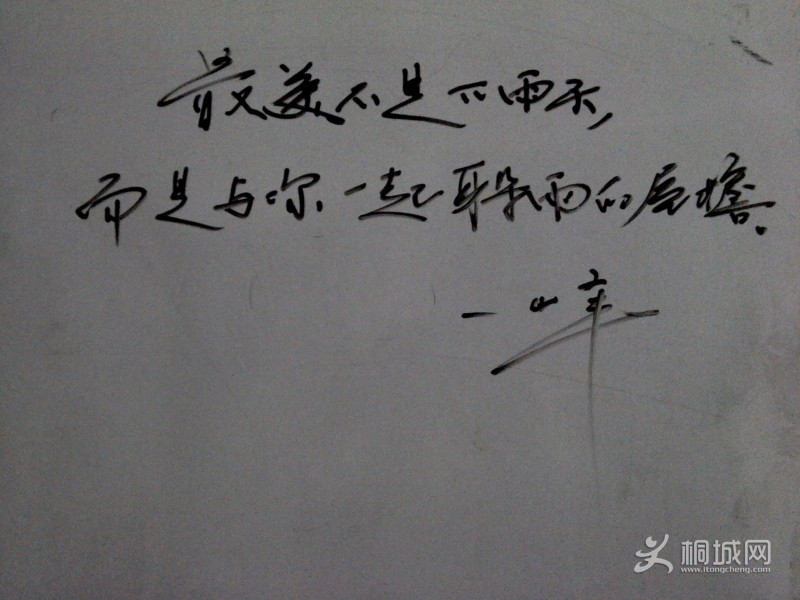 最美不是下雨天,
而是与你一起躲雨的屋檐。
一峰
桐城网
www.itongcheng.com